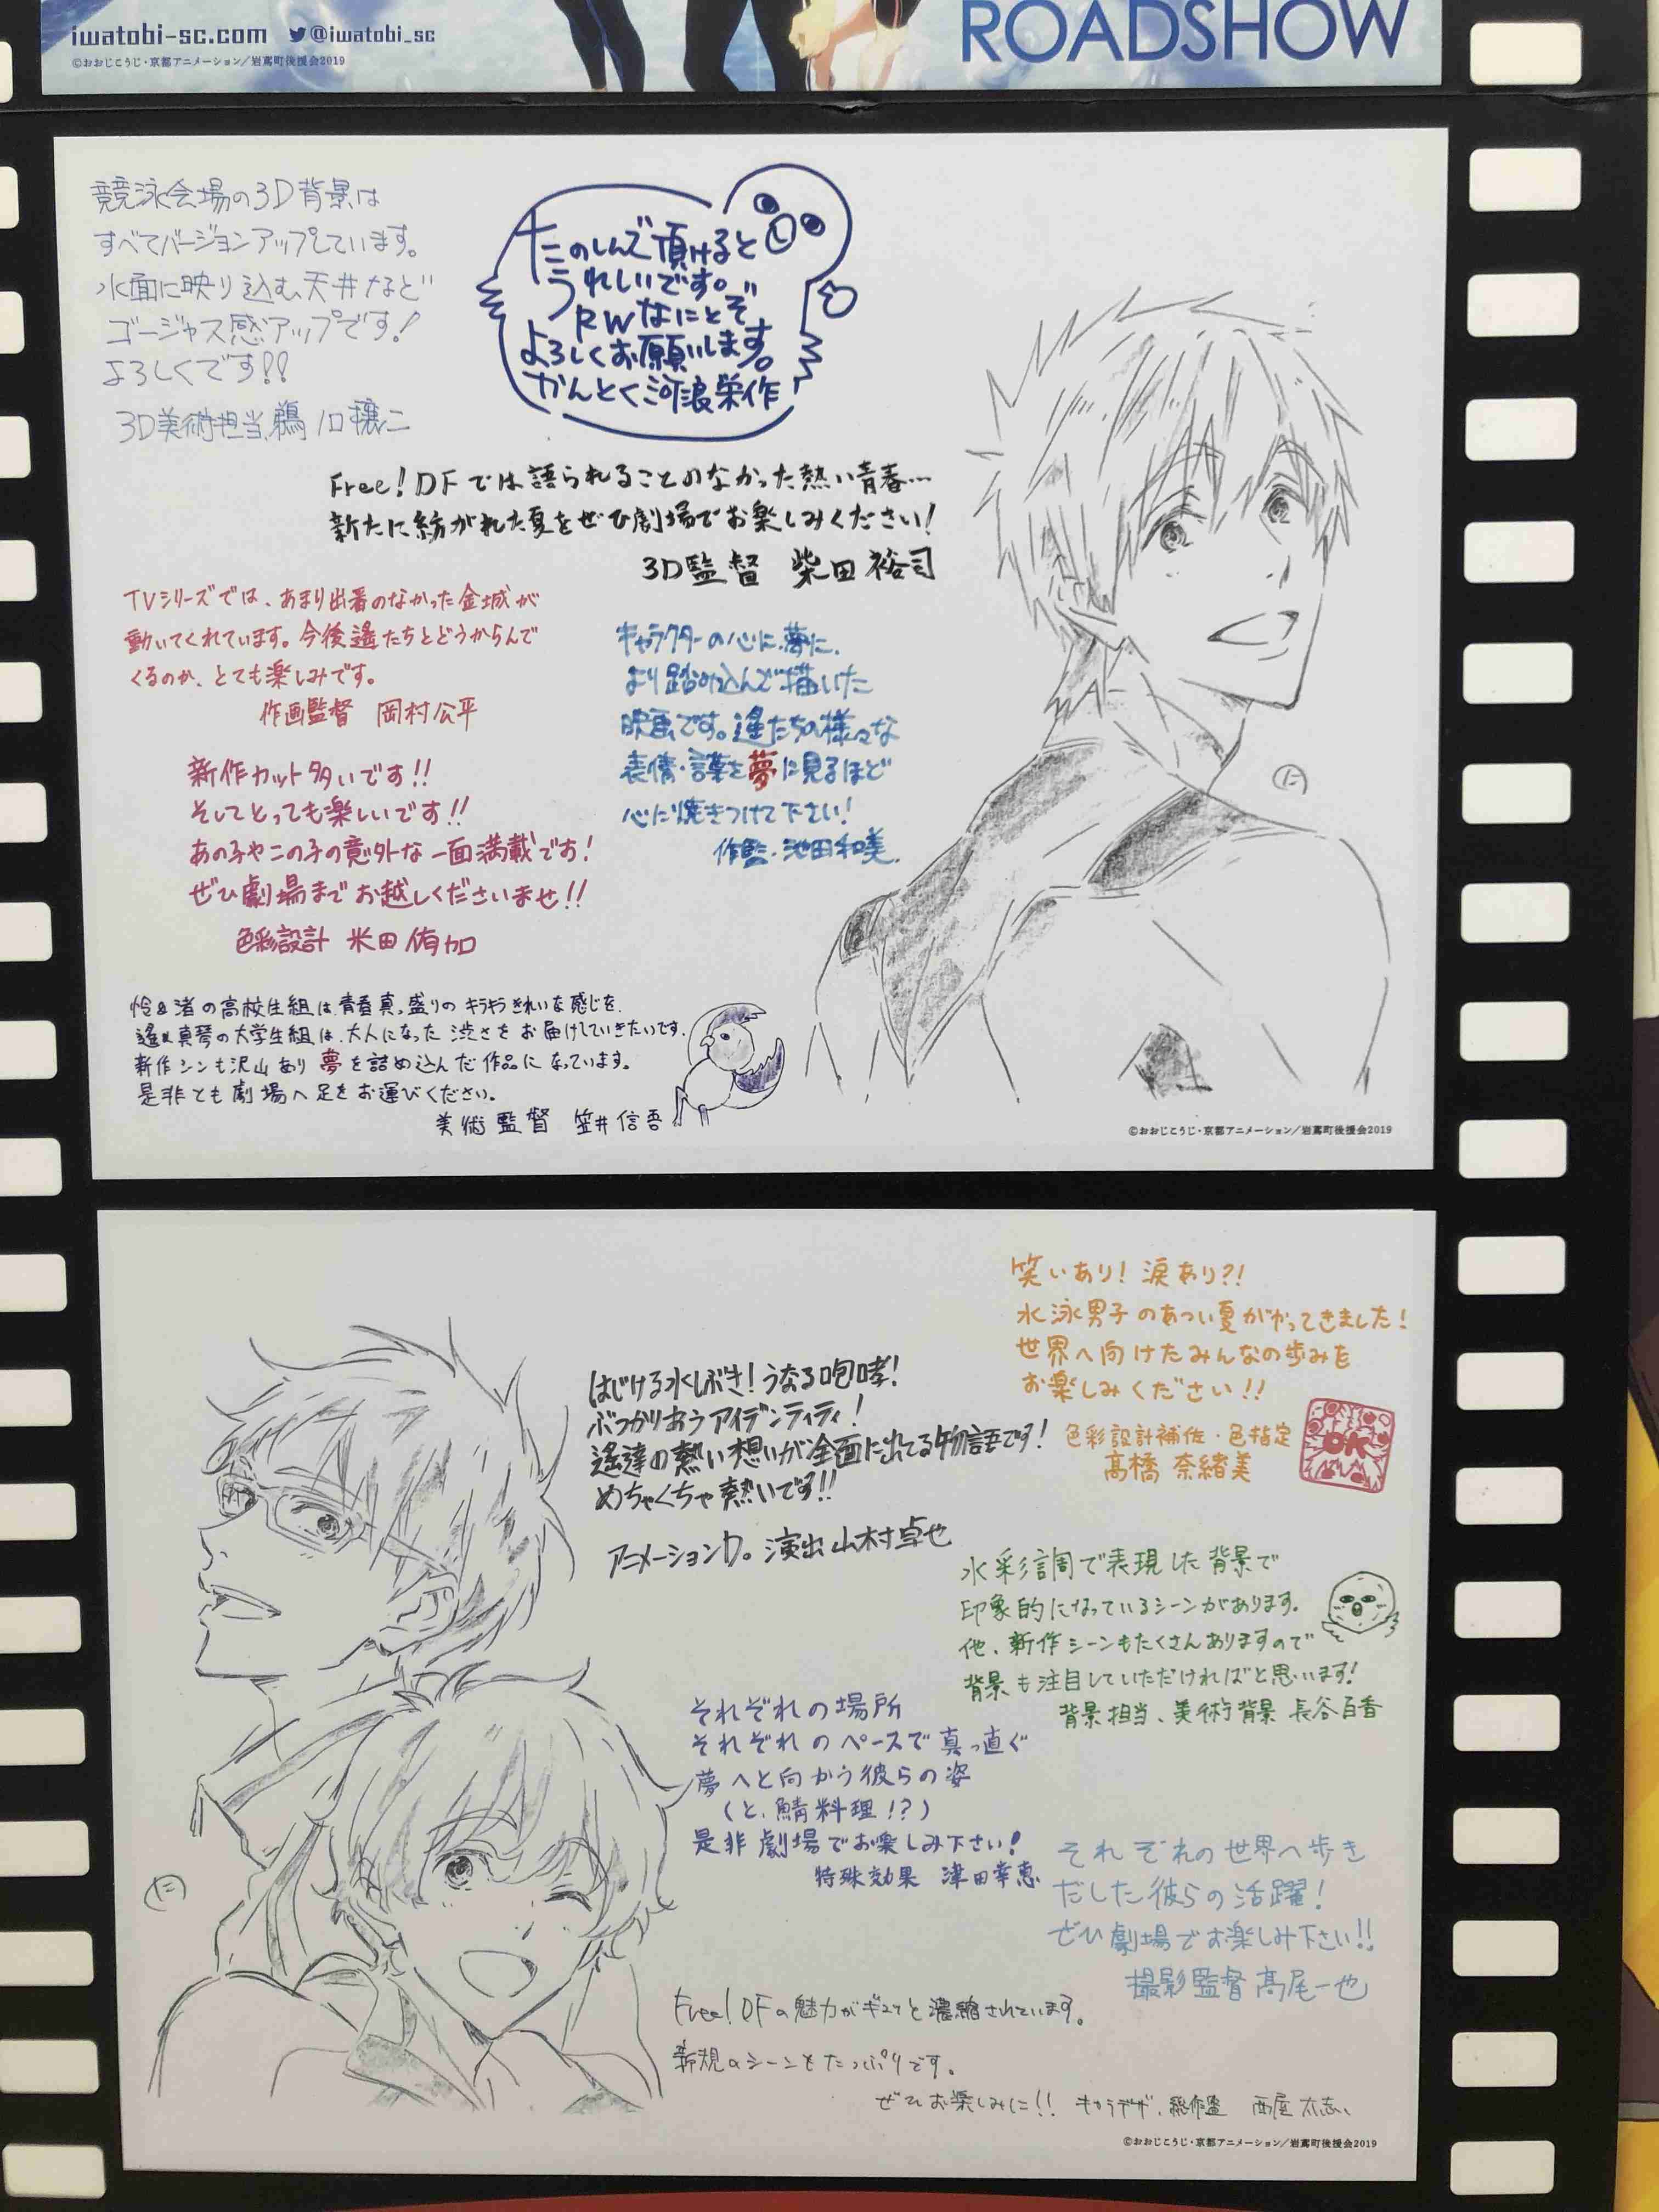 iwatobi-sc.com @iwatobi_sc
©おおじこうじ・京都アニメーション／岩鳶町後援会2019
ROADSHOW
競泳会場の3D背景は
すべてバージョンアップしています。
水面に映り込む、天井など
ゴージャス感アップです!
よろしくです!!
3D美術担当、鵜ノ口穣二
たのしんで頂けると
うれしいです。
RWなにとぞ
よろしくお願いします。
かんとく河浪栄作
Free!DFでは語られることのなかった熱い青春…
新たに紡がれた夏をぜひ劇場でお楽しみください!
3D監督 柴田裕司
TVシリーズでは、あまり出番のなかった金城が
動いてくれています。今後遙たちとどうからんで
くるのか、とても楽しみです。
作画監督 岡村公平
キャラクターの心に、夢に、
より踏み込んで描いた
映画です。遙たちの様々な
表情・言葉を夢に見るほど
心に焼きつけて下さい!
作監・池田和美
新作カット多いです!!
そしてとっても楽しいです!!
あの子やこの子の意外な一面満載です!
ぜひ劇場までお越しくださいませ!!
色彩設計 米田侑加
怜&渚の高校生組は、青春真っ盛りのキラキラきれいな感じを、
遙&真琴の大学生組は、大人になった渋さをお届けしていきたいです。
新作シーンも沢山あり夢を詰め込んだ作品になっています。
是非とも劇場へ足をお運びください。
美術監督 笠井信吾
©おおじこうじ・京都アニメーション／岩鳶町後援会2019
笑いあり!涙あり?!
水泳男子のあつい夏がやってきました!
世界へ向けたみんなの歩みを
お楽しみください!!
色彩設計補佐・色指定
高橋奈緒美
OK
はじける水しぶき!うなる咆哮!
ぶつかりあうアイデンティティ!
遙達の熱い想いが全面に出てる物語です!
めちゃくちゃ熱いです!!
アニメーションD。演出 山村卓也
水彩調で表現した背景で
印象的になっているシーンがあります。
他、新作シーンもたくさんありますので
背景も注目していただければと思います!
背景担当、美術背景 長谷百香
それぞれの場所
それぞれのペースで真っ直ぐ
夢へと向かう彼らの姿
(と、鯖料理!?)
是非劇場でお楽しみ下さい!
特殊効果 津田幸恵
それぞれの世界へ歩き
だした彼らの活躍!
ぜひ劇場でお楽しみ下さい!!
撮影監督 高尾一也
Free!DFの魅力がギュッと濃縮されています。
新規のシーンもたっぷりです。
ぜひお楽しみに!! キャラデザ、総作監 西屋太志、
©おおじこうじ・京都アニメーション／岩鳶町後援会2019